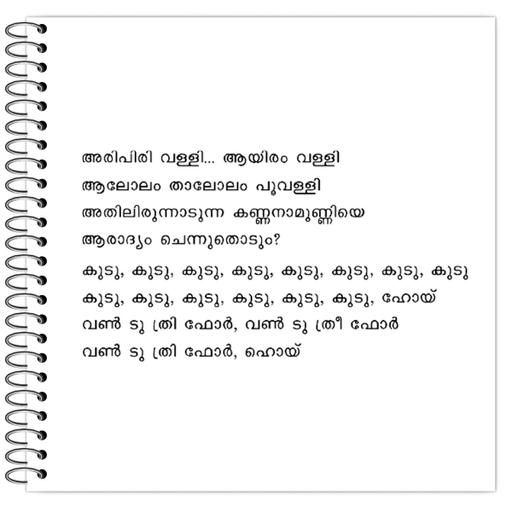 അരിപിരി വള്ളി... ആയിരം വള്ളി
ആലോലം താലോലം പൂവള്ളി
അതിലിരുന്നാടുന്ന കണ്ണനാമുണ്ണിയെ
ആരാദ്യം ചെന്നുതൊടും?
കുടു, കുടു, കുടു, കുടു, കുടു, കുടു, കുടു, കുടു
കുടു, കുടു, കുടു, കുടു, കുടു, കുടു, ഹോയ്
വൺ ടു ത്രി ഫോർ, വൺ ടു ത്രീ ഫോർ
വൺ ടു ത്രി ഫോർ, ഹൊയ്